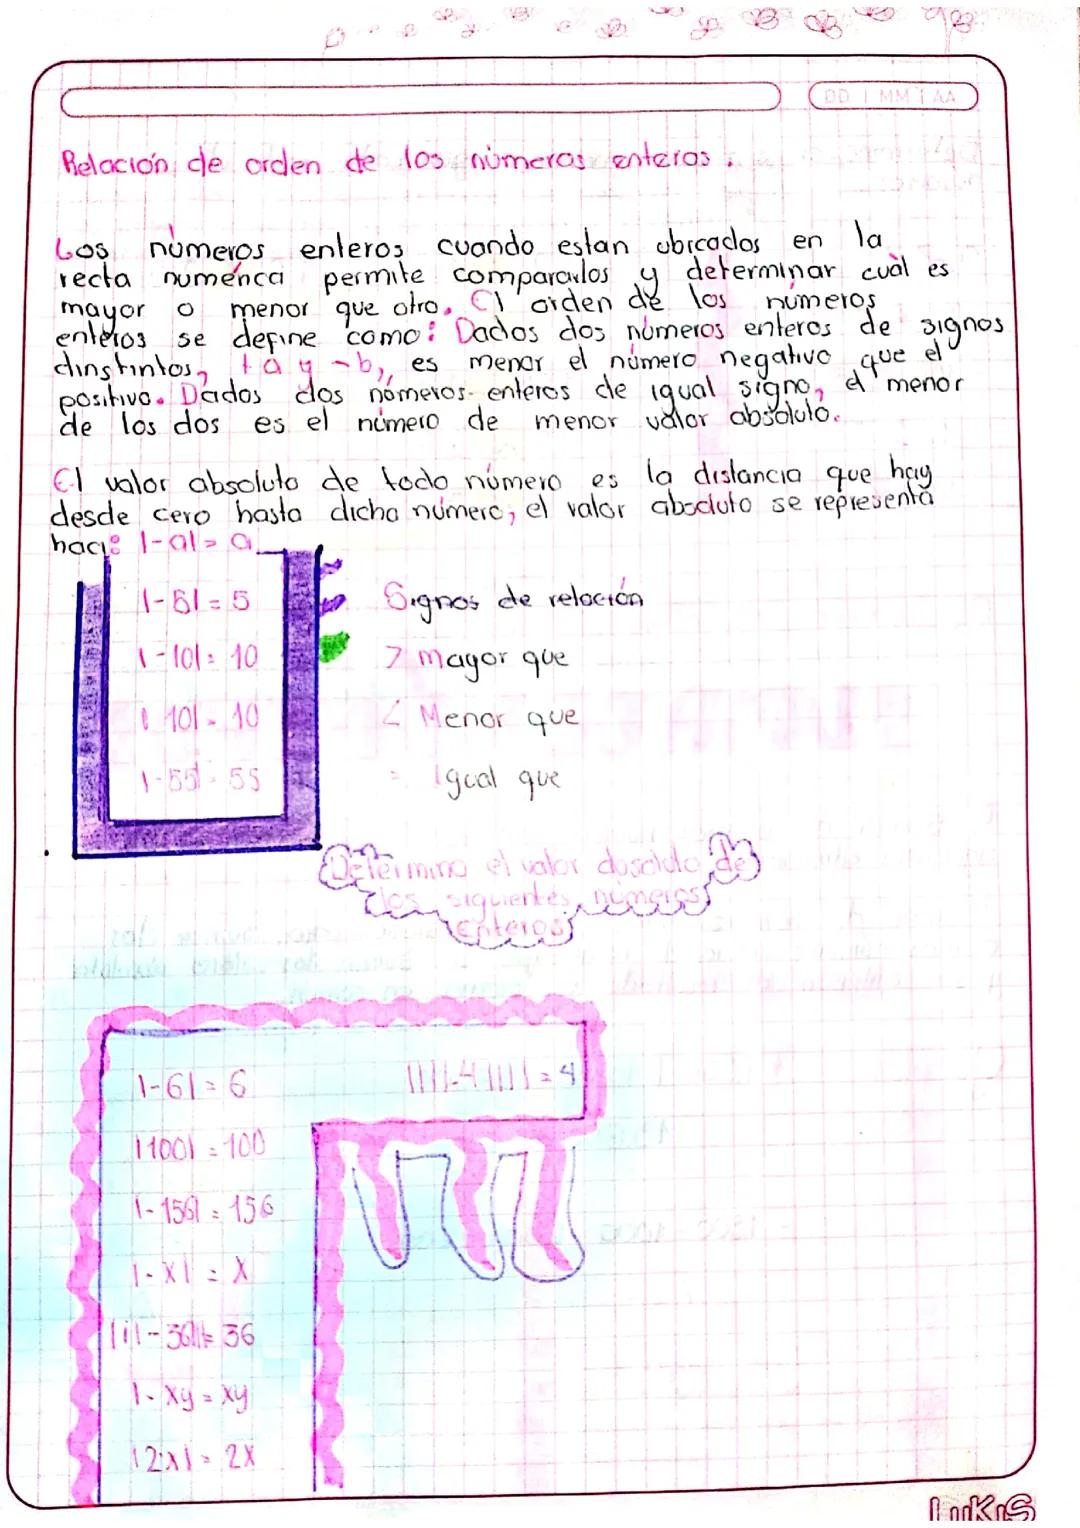 DD | MM | AA
Relación de orden de los números enteros.
Los números enteros cuando estan ubicados en la
recta numérica permite compararlos y determinar cuàl es
mayor o menor que otro. El orden de los números
enteros se define como: Dados dos números enteros de signos
dinstintos, +a y -b, es menor el número negativo que el
positivo. Dados dos números enteros de igual signo, el menor
de los dos es el número de menor valor absoluto.
El valor absoluto de todo número es la distancia que hay
desde cero hasta dicho número, el valor absoluto se representa
haci: |-a|= a
|-5|= 5
Signos de relación
|-10|= 10
> mayor que
| 10|= 10
< Menor que
|-55|= 55
= Igual que
Determino el valor de
los siguientes números
enteros
|-6|= 6
||||-4||||= 4
|100|= 100
|-156|= 156
|-x|= x
36
|-xy = xy
|2x|= 2x
LukiS